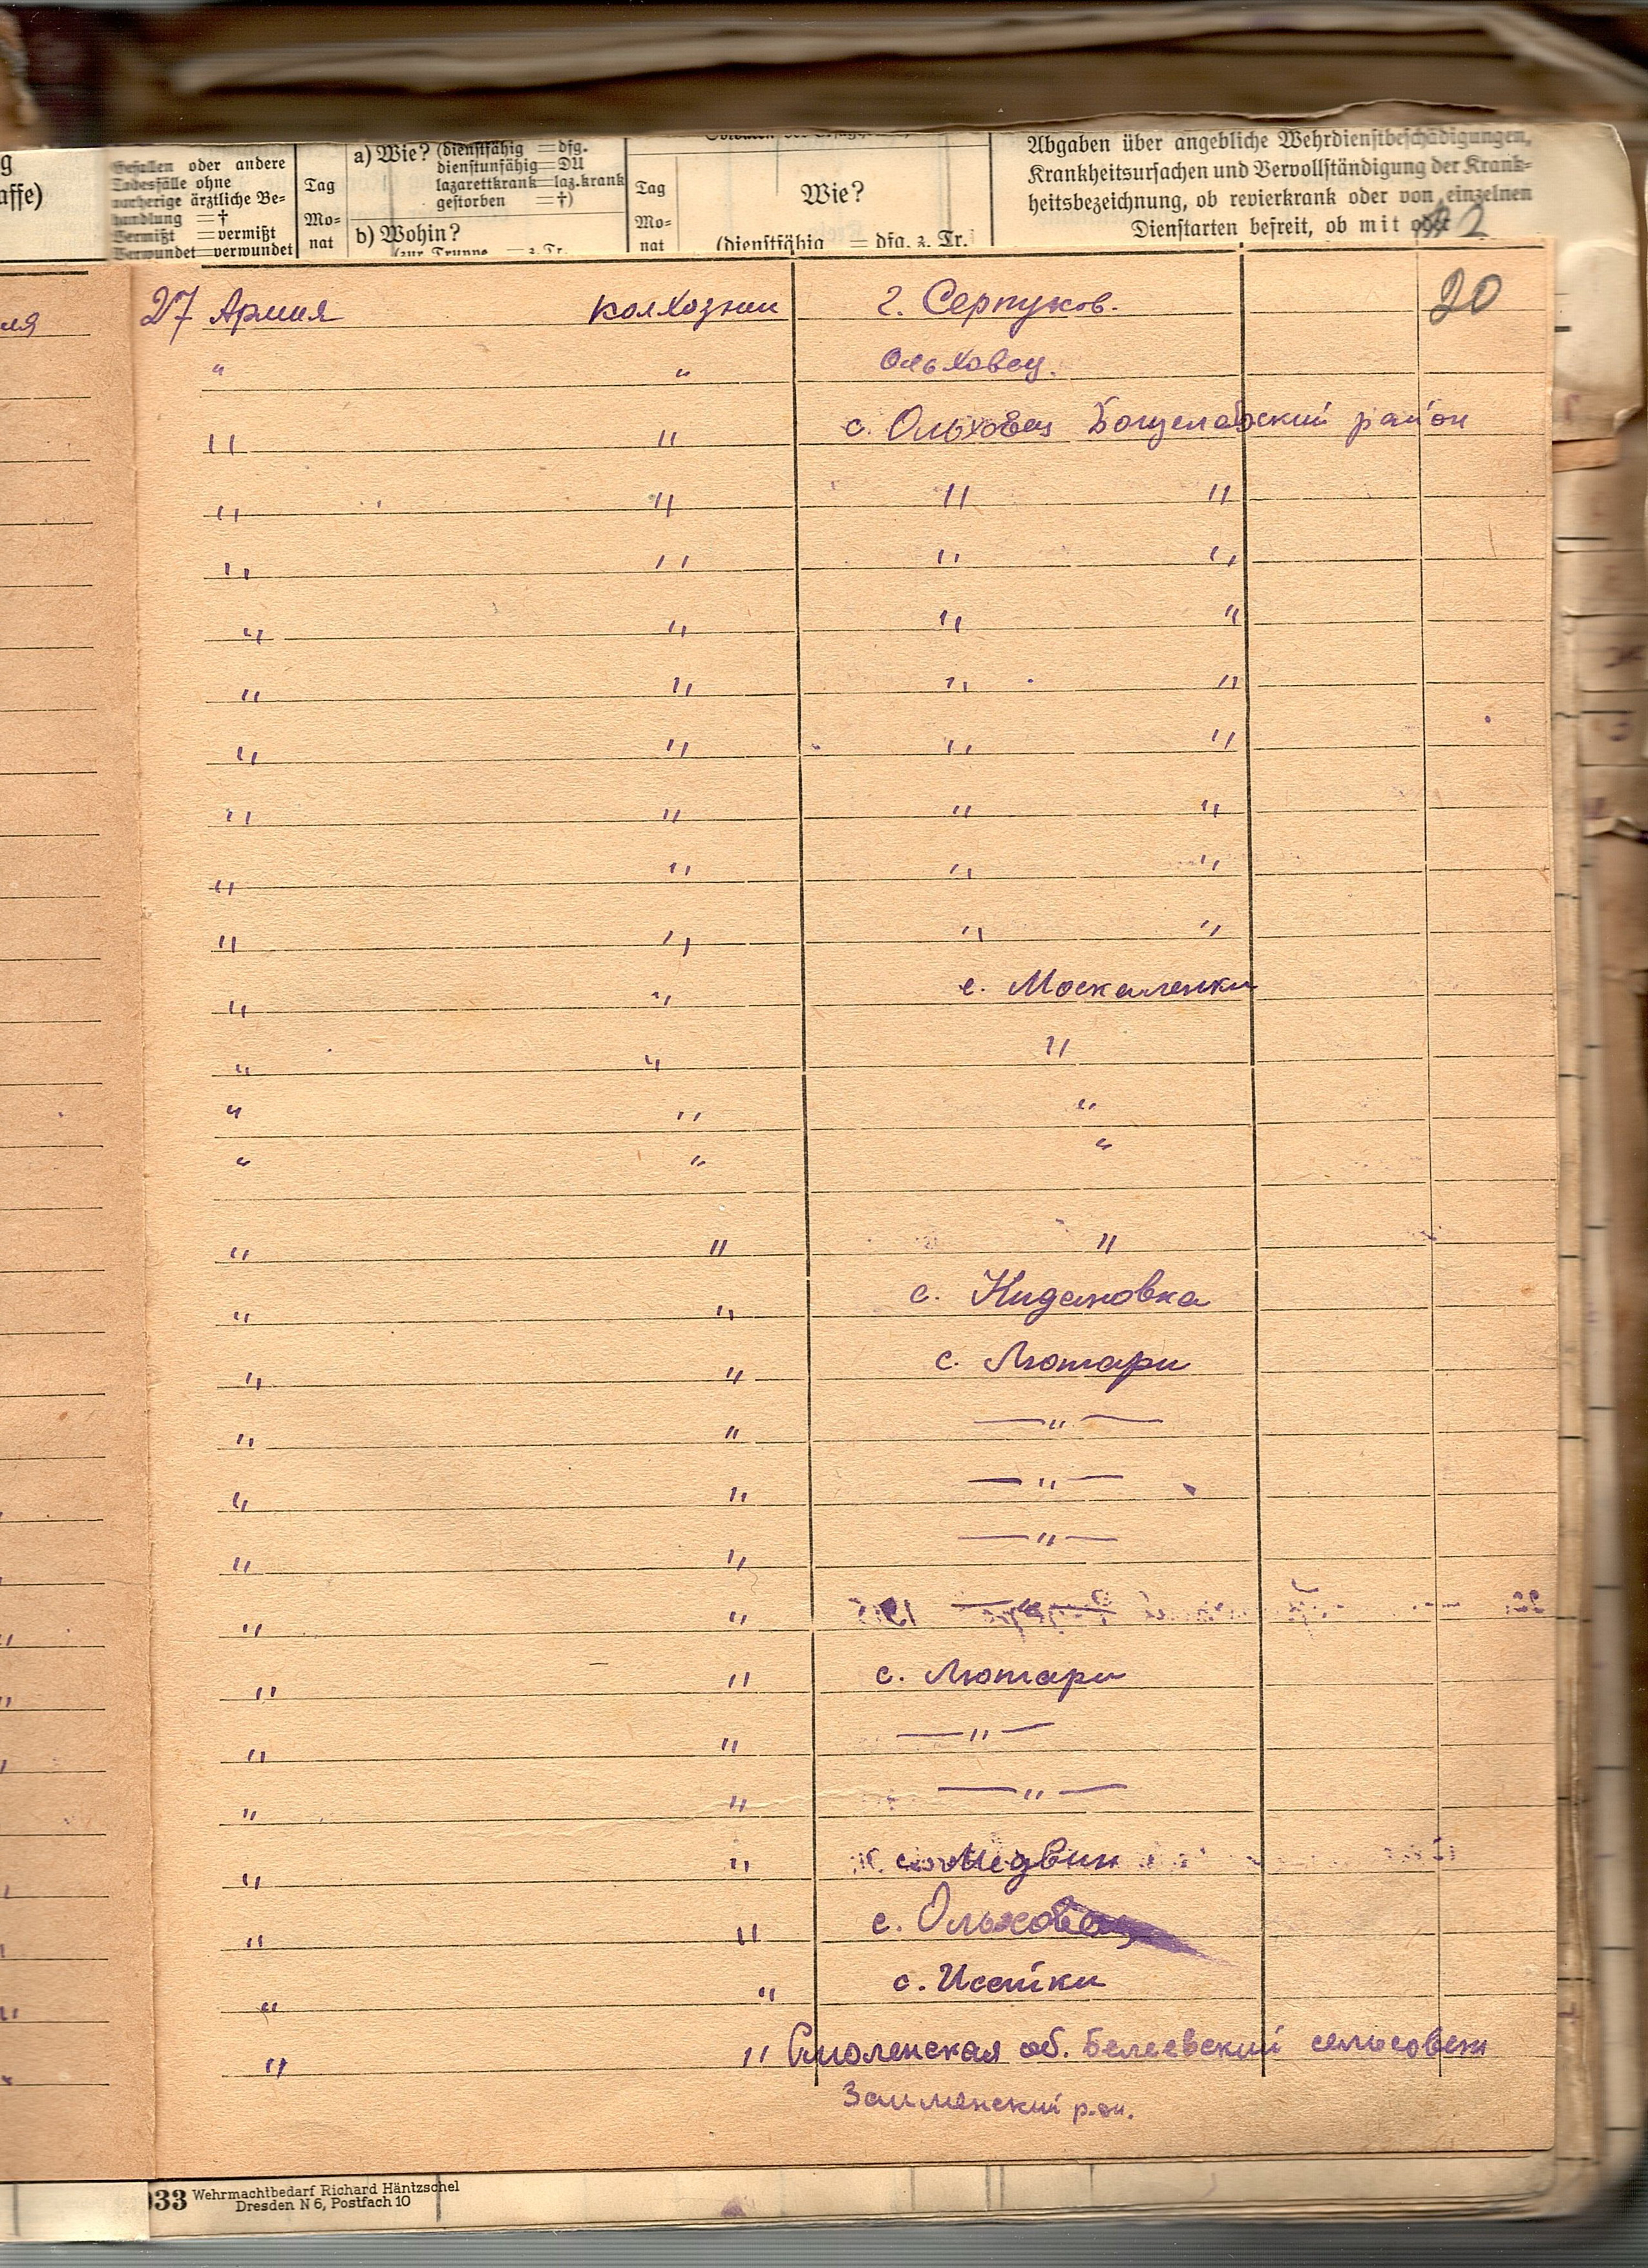 g
affe)
Gefallen oder andere
Todesfälle ohne
vorherige ärztliche Be-
handlung = †
Vermißt = vermißt
Verwundet = verwundet
Tag
Mo-
nat
a) Wie? (dienstfähig = dfg.
dienstunfähig = DU
lazarettkrank = laz.krank
gestorben = †)
b) Wohin?
(zur Truppe = z. Tr.
Tag
Mo-
nat
Wie?
(dienstfähig = dfg. z. Tr.
Abgaben über angebliche Wehrdienstbeschädigungen,
Krankheitsursachen und Vervollständigung der Krank-
heitsbezeichnung, ob revierkrank oder von einzelnen
Dienstarten befreit, ob mit oder
27 Армия колхозни г. Серпуков. 20
" " Ольховец.
" " с. Ольховец Богуславский район
" " " "
" " " "
" " " "
" " " "
" " " "
" " " "
" " " "
" " " "
" " с. Москаленки
" " "
" " "
" " "
" " "
" " с. Нидановка
" " с. Лютари
" " — " —
" " — " —
" " — " —
" " — " —
" " с. Лютари
" " — " —
" " — " —
" " Медвин
" " с. Ольховец
" " с. Исайки
" " Смоленская об. Белеевский сельсовет
р-он.
33 Wehrmachtbedarf Richard Häntzschel
Dresden N 6, Postfach 10